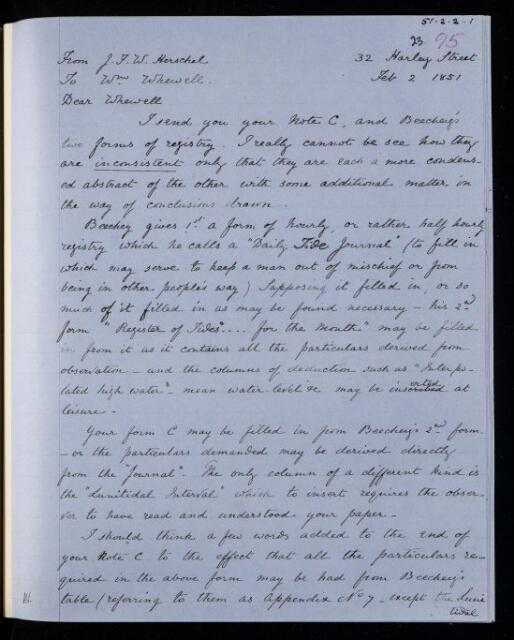 51-2-2-1
23 95
From J. F. W. Herschel 32 Harley Street
To Wm Whewell. Feb 2 1851
Dear Whewell
I send you your Note C, and Beechey's
two forms of registry. I really cannot be see how they
are inconsistent only that they are each a more condens-
ed abstract of the other with some additional matter in
the way of conclusions drawn.
Beechey gives 1st a form of hourly, or rather half hourly
registry which he calls a "Daily Tide Journal" (to fill in
which may serve to keep a man out of mischief or from
being in other people's way) Supposing it filled in, or so
much of it filled in as may be found necessary - his 2nd
form "Register of Tides".... for the Month" may be filled
in from it as it contains all the particulars derived from
observation - and the columns of deduction such as "Interpo-
lated high water" - mean water level &c may be inserted at
leisure -
Your form C may be filled in from Beechey's 2nd form
- or the particulars demanded may be derived directly
from the "Journal". The only column of a different kind is
the "Lunitidal Interval" which to insert requires the obser-
ver to have read and understood your paper -
I should think a few words added to the end of
your Note C to the effect that all the particulars re-
quired in the above form may be had from Beechey's
table (referring to them as Appendix No 7 - except the Luni
tidal